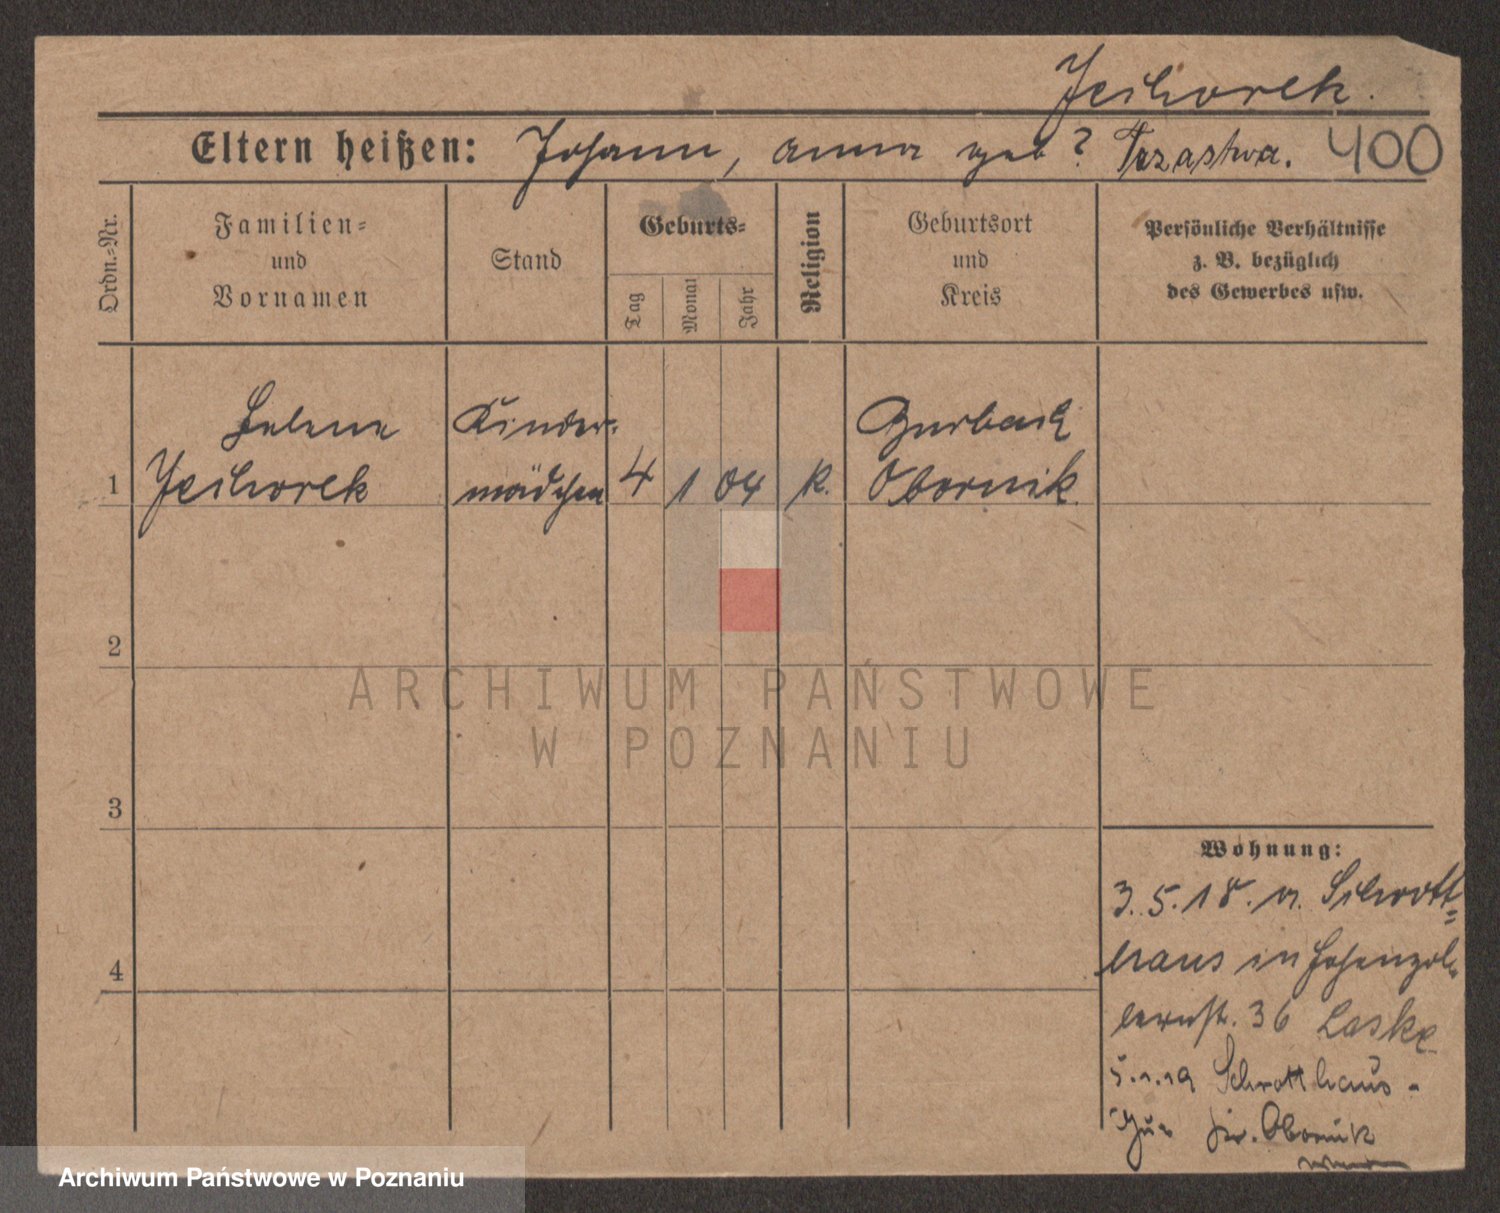 Jeschorek.
Eltern heißen: Johann, Anna geb? 400
Ordn.-Nr.
Familien-
und
Vornamen
Stand
Geburts-
Tag
Monat
Jahr
Religion
Geburtsort
und
Kreis
Persönliche Verhältnisse
z. B. bezüglich
des Gewerbes usw.
1
Helene
Jeschorek
Kinder-
mädchen
4 1 04 K.
Obornik
2
3
4
Wohnung:
3.5.18. v. Schrott-
haus in Hohenzol-
lernstr. 36 Laske
5.1.19 Schrotthaus -
Obornik
ARCHIWUM PAŃSTWOWE
W POZNANIU
Archiwum Państwowe w Poznaniu